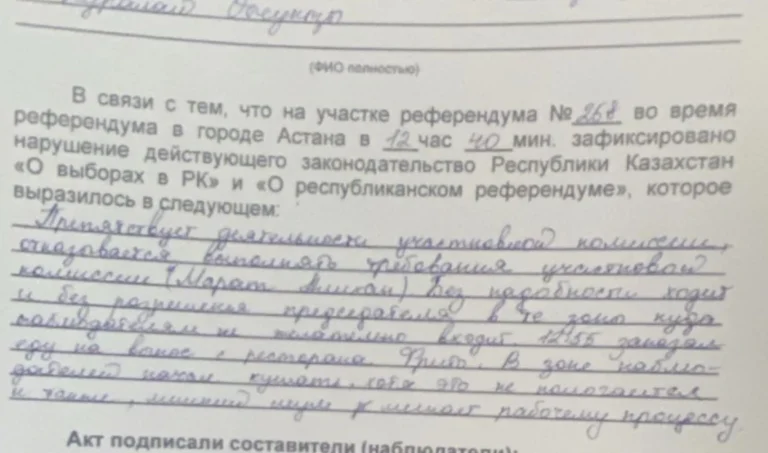 (ФИО полностью)
В связи с тем, что на участке референдума № 268 во время
референдума в городе Астана в 12 час 40 мин. зафиксировано
нарушение действующего законодательство Республики Казахстан
«О выборах в РК» и «О республиканском референдуме», которое
выразилось в следующем:
Препятствует деятельности участковой комиссии,
отказывается выполнять требования участковой
комиссии (Марат) Без надобности ходит
и без разрешения председателя в те зоны куда
наблюдателям не желательно входит. 12:55 заказал
еду на вынос, ресторана. В зоне наблю-
дателей начал кушать, хотя это не полагается
и также, мешает рабочему процессу.
Акт подписали составители (наблюдатели):